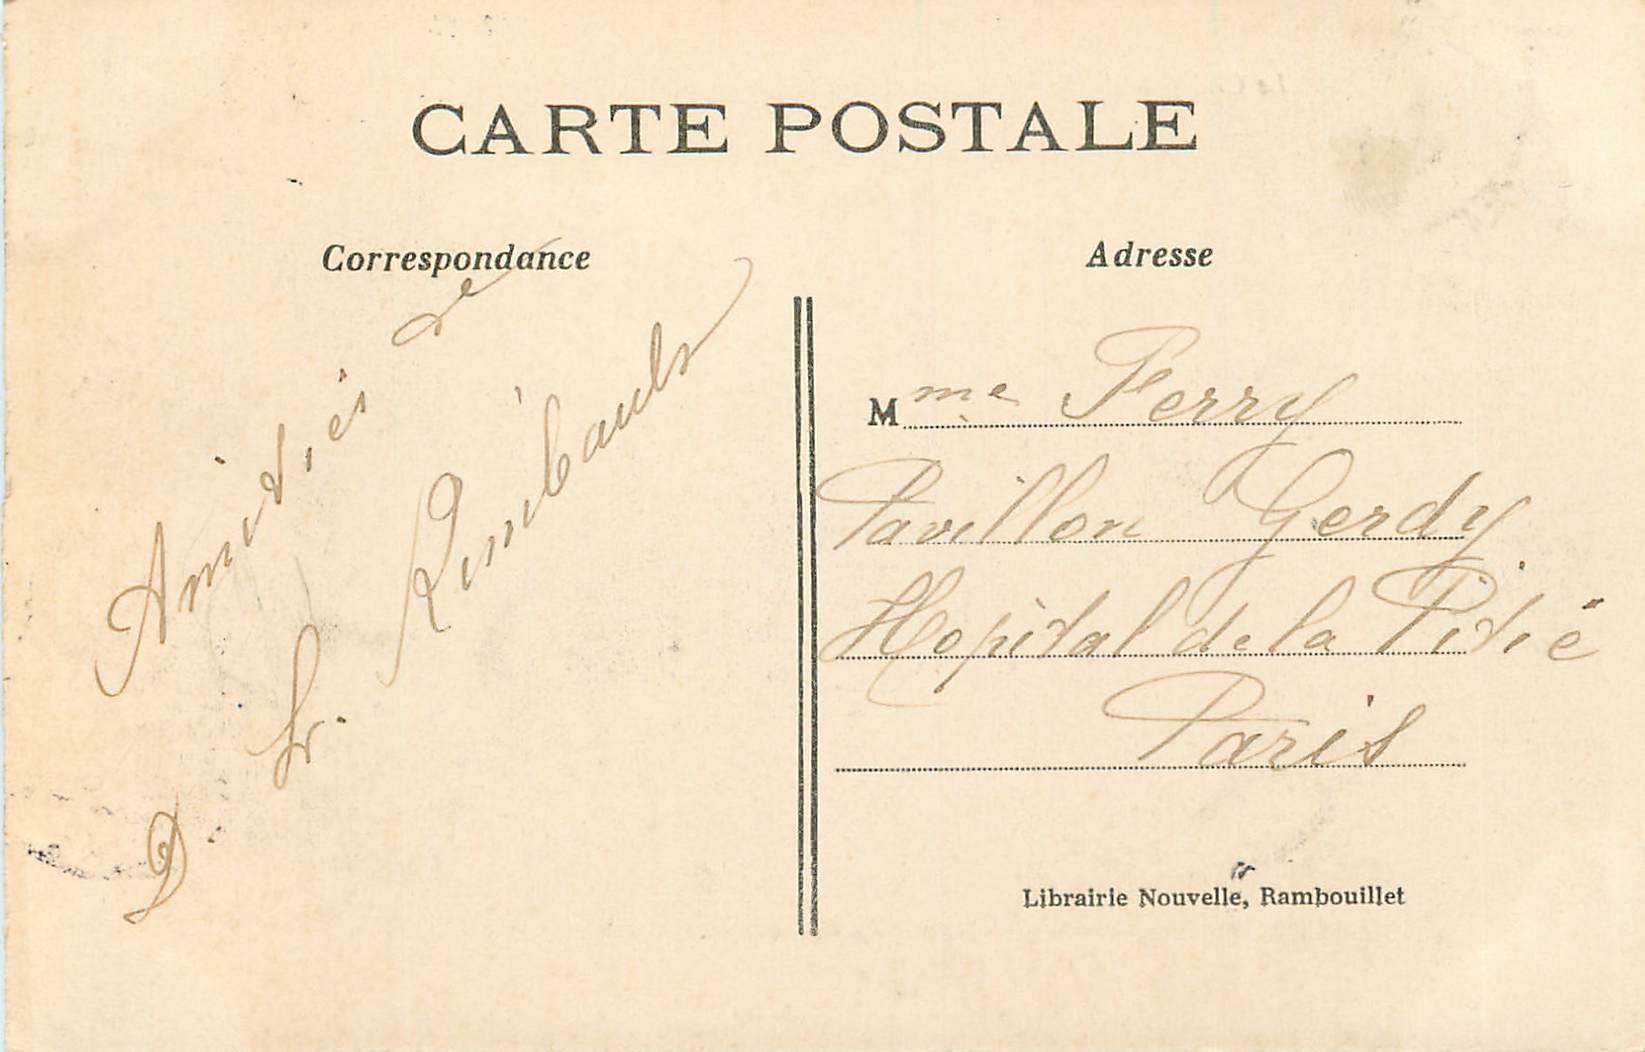 CARTE POSTALE
Correspondance
Amitiés de
Rimbault
D. Fr.
Adresse
Mme Ferry
Pavillon Gerdy
Hopital de la Pitié
Paris
Librairie Nouvelle, Rambouillet